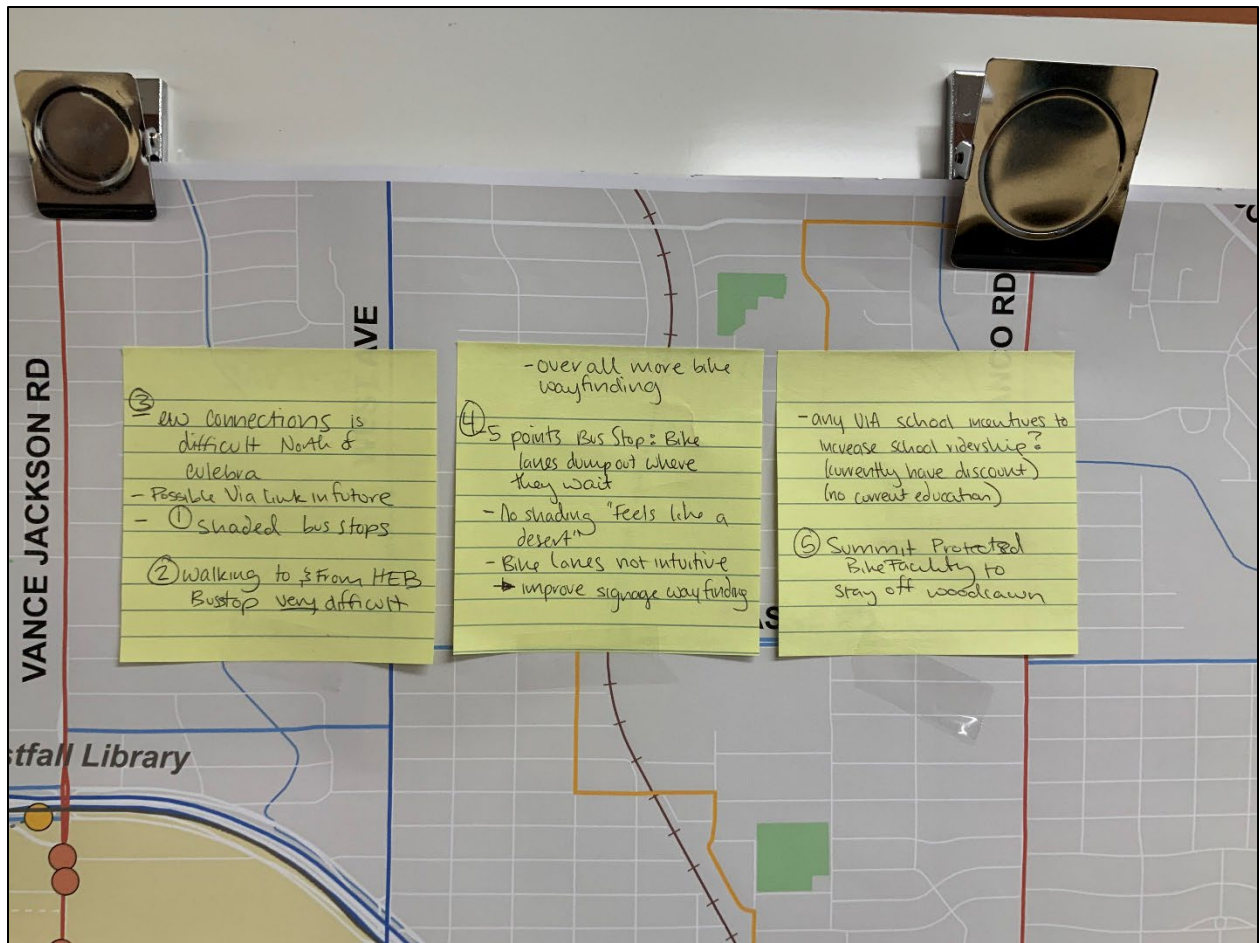 VANCE JACKSON RD
AVE
CO RD
③
EW connections is
difficult North of
Culebra
- Possible Via Link in future
- ① shaded bus stops
② Walking to & From HEB
Busstop very difficult
- overall more bike
wayfinding
④ - 5 points Bus Stop: Bike
lanes dump out where
they wait
- No shading "Feels like a
desert"
- Bike lanes not intuitive
→ improve signage wayfinding
- any VIA school incentives to
increase school ridership?
(currently have discount)
(no current education)
⑤ Summit Protected
Bike Facility to
stay off woodlawn
AS
stfall Library